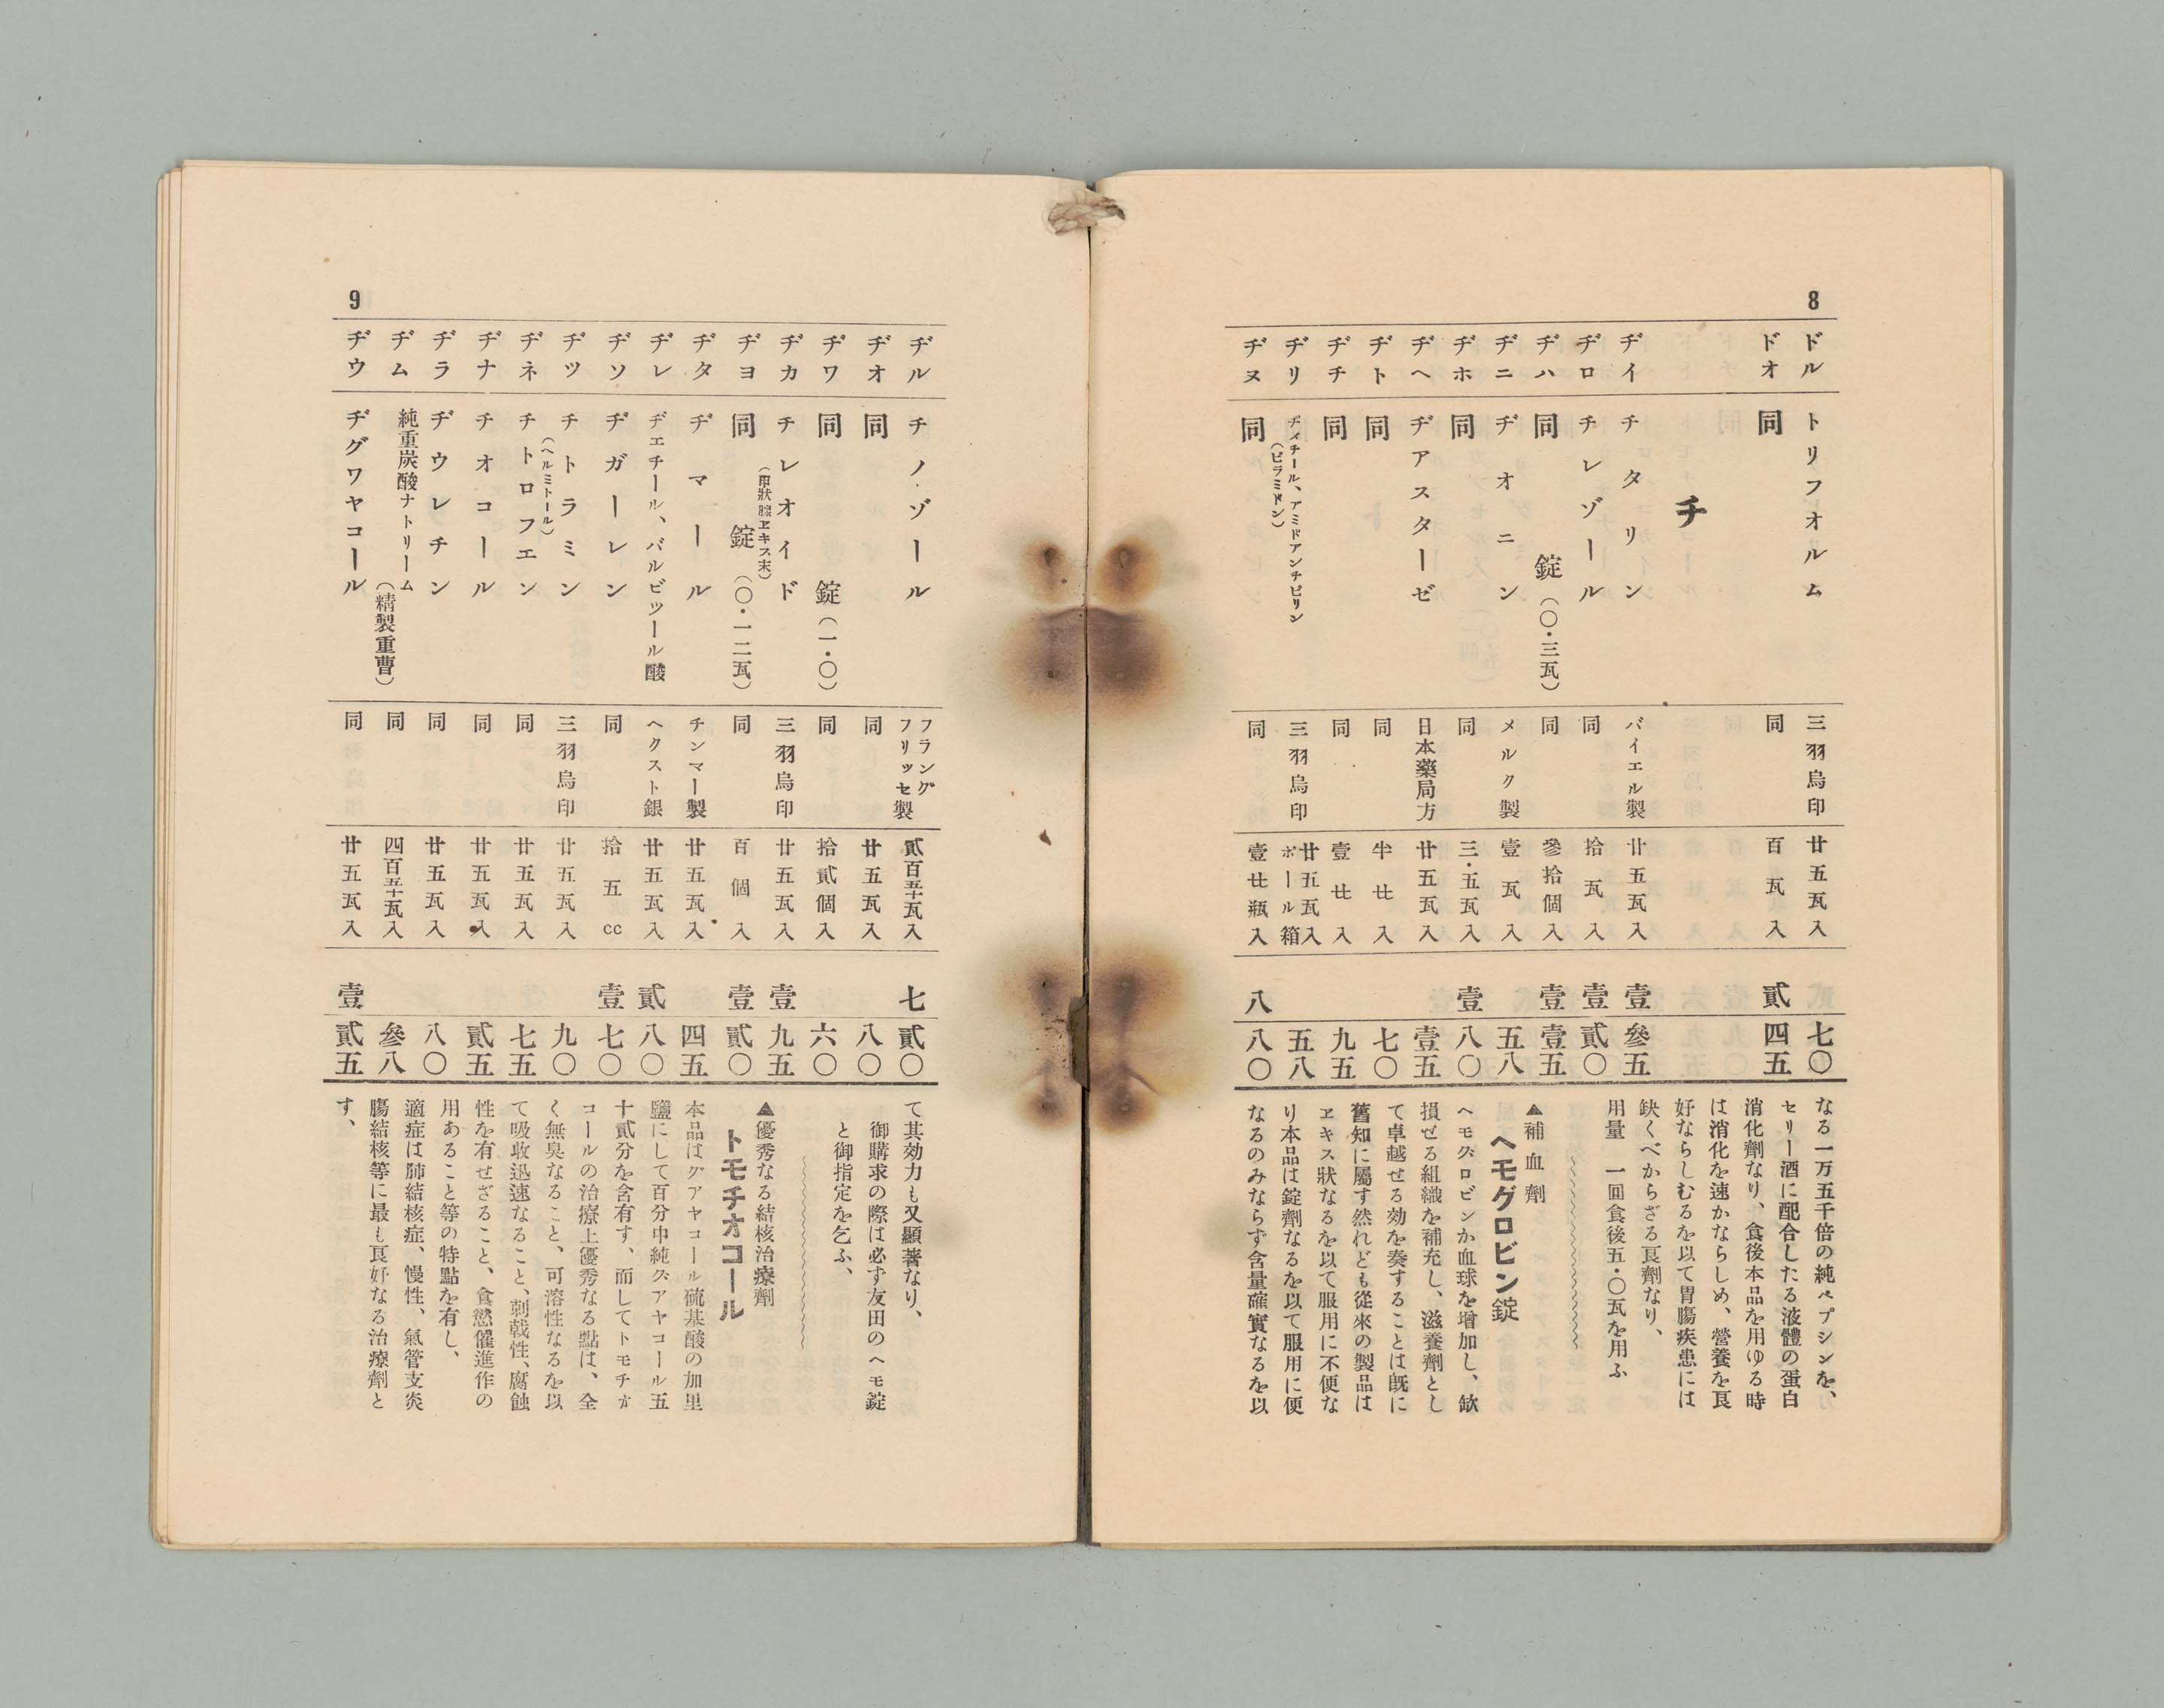 8
ドル トリフオルム 三羽鳥印 廿五瓦入 七〇
ドオ 同 同 百瓦入 貳四五
チ
ヂイ チタリン バイエル製 廿五瓦入 壹參五
ヂロ チレゾール 同 拾瓦入 壹貳〇
ヂハ 同錠(〇・三瓦) 同 參拾個入 壹壹五
ヂニ ヂオニン メルク製 壹瓦入 五八
ヂホ 同 同 三・五瓦入 壹八〇
ヂヘ ヂアスターゼ 日本藥局方 廿五瓦入 壹五
ヂト 同 同 半𠀋入 七〇
ヂチ 同 同 壹𠀋入 九五
ヂリ ヂメチール、アミドアンチピリン(ピラミドン) 三羽鳥印 廿五瓦入ボール箱 五八
ヂヌ 同 同 壹𠀋瓶入 八八〇
なる一万五千倍の純ペプシンを、
セリー酒に配合したる液體の蛋白
消化劑なり、食後本品を用ゆる時
は消化を速かならしめ、營養を良
好ならしむるを以て胃腸疾患には
缺くべからざる良劑なり、
用量 一回食後五・〇瓦を用ふ
▲補血劑
ヘモグロビン錠
ヘモグロビンか血球を增加し、缼
損せる組織を補充し、滋養劑とし
て卓越せる効を奏することは旣に
舊知に屬す然れども從來の製品は
ヱキス狀なるを以て服用に不便な
り本品は錠劑なるを以て服用に便
なるのみならす含量確實なるを以
9
ヂル チノゾール フラングフリッセ製 貳百五十瓦入 七貳〇
ヂオ 同 同 廿五瓦入 八〇
ヂワ 同錠(一・〇) 同 拾貳個入 六〇
ヂカ チレオイド(甲狀腺ヱキス末) 三羽鳥印 廿五瓦入 壹九五
ヂヨ 同錠(〇・一二瓦) 同 百個入 壹貳〇
ヂタ ヂマール チンマー製 廿五瓦入 四五
ヂレ ヂエチール、バルビツール酸 ヘクスト銀 廿五瓦入 貳八〇
ヂソ ヂガーレン 同 拾五cc 壹七〇
ヂツ チトラミン(ヘルミトール) 三羽鳥印 廿五瓦入 九〇
ヂネ チトロフエン 同 廿五瓦入 七五
ヂナ チオコール 同 廿五瓦入 貳五
ヂラ ヂウレチン 同 廿五瓦入 八〇
ヂム 純重炭酸ナトリーム(精製重曹) 同 四百五十瓦入 參八
ヂウ ヂグワヤコール 同 廿五瓦入 壹貳五
て其効力も又顯著なり、
御購求の際は必す友田のヘモ錠
と御指定を乞ふ、
▲優秀なる結核治療劑
トモチオコール
本品はグアヤコール硫基酸の加里
鹽にして百分中純グアヤコール五
十貳分を含有す、而してトモチオ
コールの治療上優秀なる點は、全
く無臭なること、可溶性なるを以
て吸收迅速なること、刺戟性、腐蝕
性を有せざること、食慾催進作の
用あること等の特點を有し、
適症は肺結核症、慢性、氣管支炎
腸結核等に最も良好なる治療劑と
す、